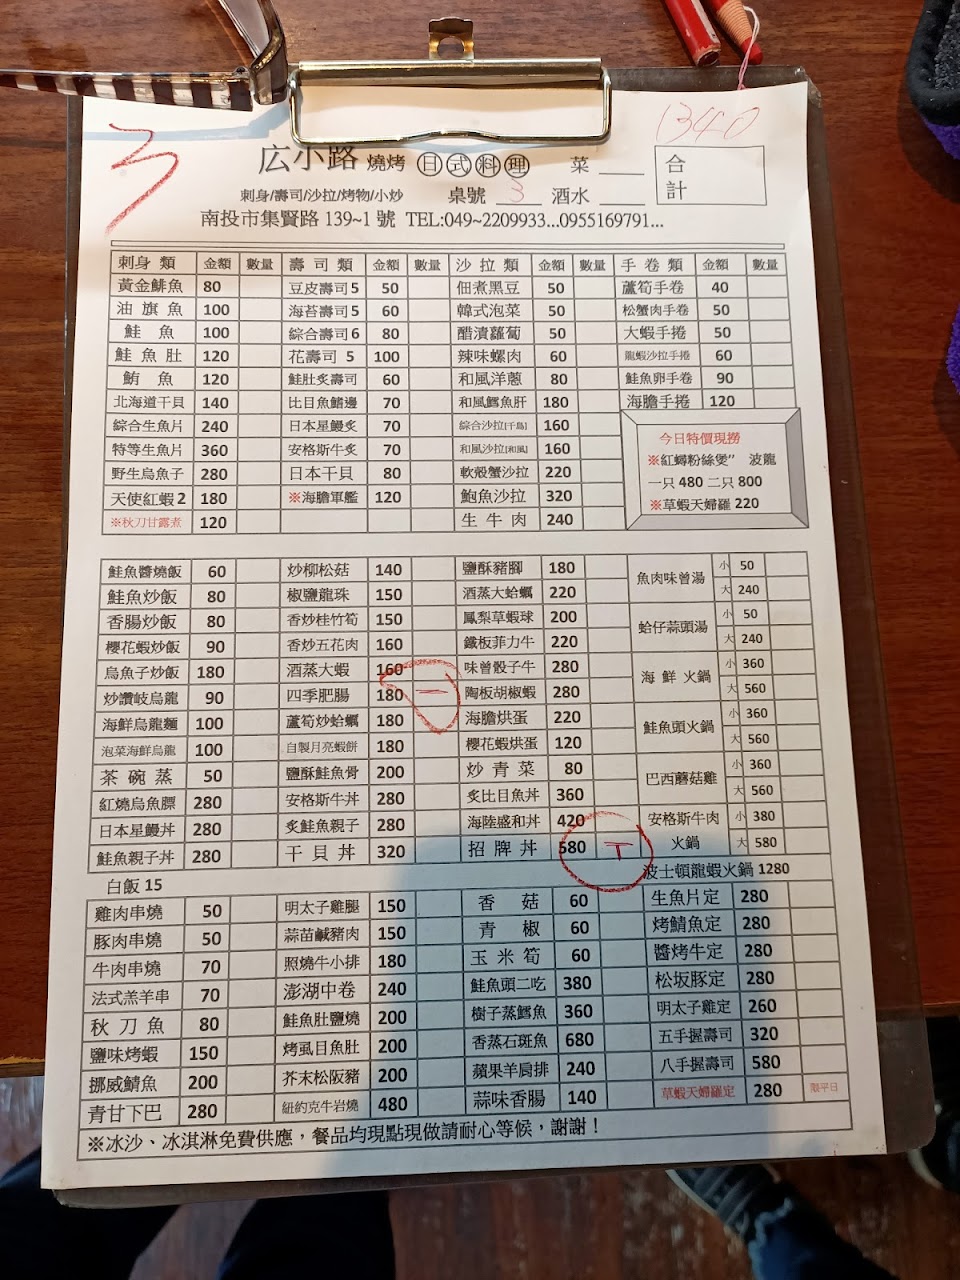 1340
3
広小路 燒烤 日式料理 菜
合計
刺身/壽司/沙拉/烤物/小炒 桌號 3 酒水
南投市集賢路 139~1 號 TEL:049~2209933...0955169791...
刺身類 金額 數量 壽司類 金額 數量 沙拉類 金額 數量 手卷類 金額 數量
黃金鯡魚 80 豆皮壽司 5 50 佃煮黑豆 50 蘆筍手卷 40
油旗魚 100 海苔壽司 5 60 韓式泡菜 50 松蟹肉手卷 50
鮭魚 100 綜合壽司 6 80 醋漬蘿蔔 50 大蝦手捲 50
鮭魚肚 120 花壽司 5 100 辣味螺肉 60 龍蝦沙拉手捲 60
鮪魚 120 鮭肚炙壽司 60 和風洋蔥 80 鮭魚卵手卷 90
北海道干貝 140 比目魚鰭邊 70 和風鱈魚肝 180 海膽手捲 120
綜合生魚片 240 日本星鰻炙 70 綜合沙拉[千島] 160
特等生魚片 360 安格斯牛炙 70 和風沙拉[和風] 160
野生烏魚子 280 日本干貝 80 軟殼蟹沙拉 220
天使紅蝦 2 180 ※海膽軍艦 120 鮑魚沙拉 320
※秋刀甘露煮 120 生牛肉 240
今日特價現撈
※紅蟳粉絲煲” 波龍
一只 480 二只 800
※草蝦天婦羅 220
鮭魚醬燒飯 60 炒柳松菇 140 鹽酥豬腳 180 魚肉味曾湯 小 50
鮭魚炒飯 80 椒鹽龍珠 150 酒蒸大蛤蠣 220 大 240
香腸炒飯 80 香炒桂竹筍 150 鳳梨草蝦球 200 蛤仔蒜頭湯 小 50
櫻花蝦炒飯 90 香炒五花肉 160 鐵板菲力牛 220 大 240
烏魚子炒飯 180 酒蒸大蝦 160 味曾骰子牛 280 海鮮火鍋 小 360
炒讚岐烏龍 90 四季肥腸 180 一 陶板胡椒蝦 280 大 560
海鮮烏龍麵 100 蘆筍炒蛤蠣 180 海膽烘蛋 220 鮭魚頭火鍋 小 360
泡菜海鮮烏龍 100 自製月亮蝦餅 180 櫻花蝦烘蛋 120 大 560
茶碗蒸 50 鹽酥鮭魚骨 200 炒青菜 80 巴西蘑菇雞 小 360
紅燒烏魚膘 280 安格斯牛丼 280 炙比目魚丼 360 大 560
日本星鰻丼 280 炙鮭魚親子 280 海陸盛和丼 420 安格斯牛肉 小 380
鮭魚親子丼 280 干貝丼 320 招牌丼 580 T 火鍋 大 580
白飯 15 波士頓龍蝦火鍋 1280
雞肉串燒 50 明太子雞腿 150 香菇 60 生魚片定 280
豚肉串燒 50 蒜苗鹹豬肉 150 青椒 60 烤鯖魚定 280
牛肉串燒 70 照燒牛小排 180 玉米筍 60 醬烤牛定 280
法式羔羊串 70 澎湖中卷 240 鮭魚頭二吃 380 松坂豚定 280
秋刀魚 80 鮭魚肚鹽燒 200 樹子蒸鱈魚 360 明太子雞定 260
鹽味烤蝦 150 烤虱目魚肚 200 香蒸石斑魚 680 五手握壽司 320
挪威鯖魚 200 芥末松阪豬 200 蘋果羊肩排 240 八手握壽司 580
青甘下巴 280 紐約克牛岩燒 480 蒜味香腸 140 草蝦天婦羅定 280 限平日
※冰沙、冰淇淋免費供應，餐品均現點現做請耐心等候，謝謝！